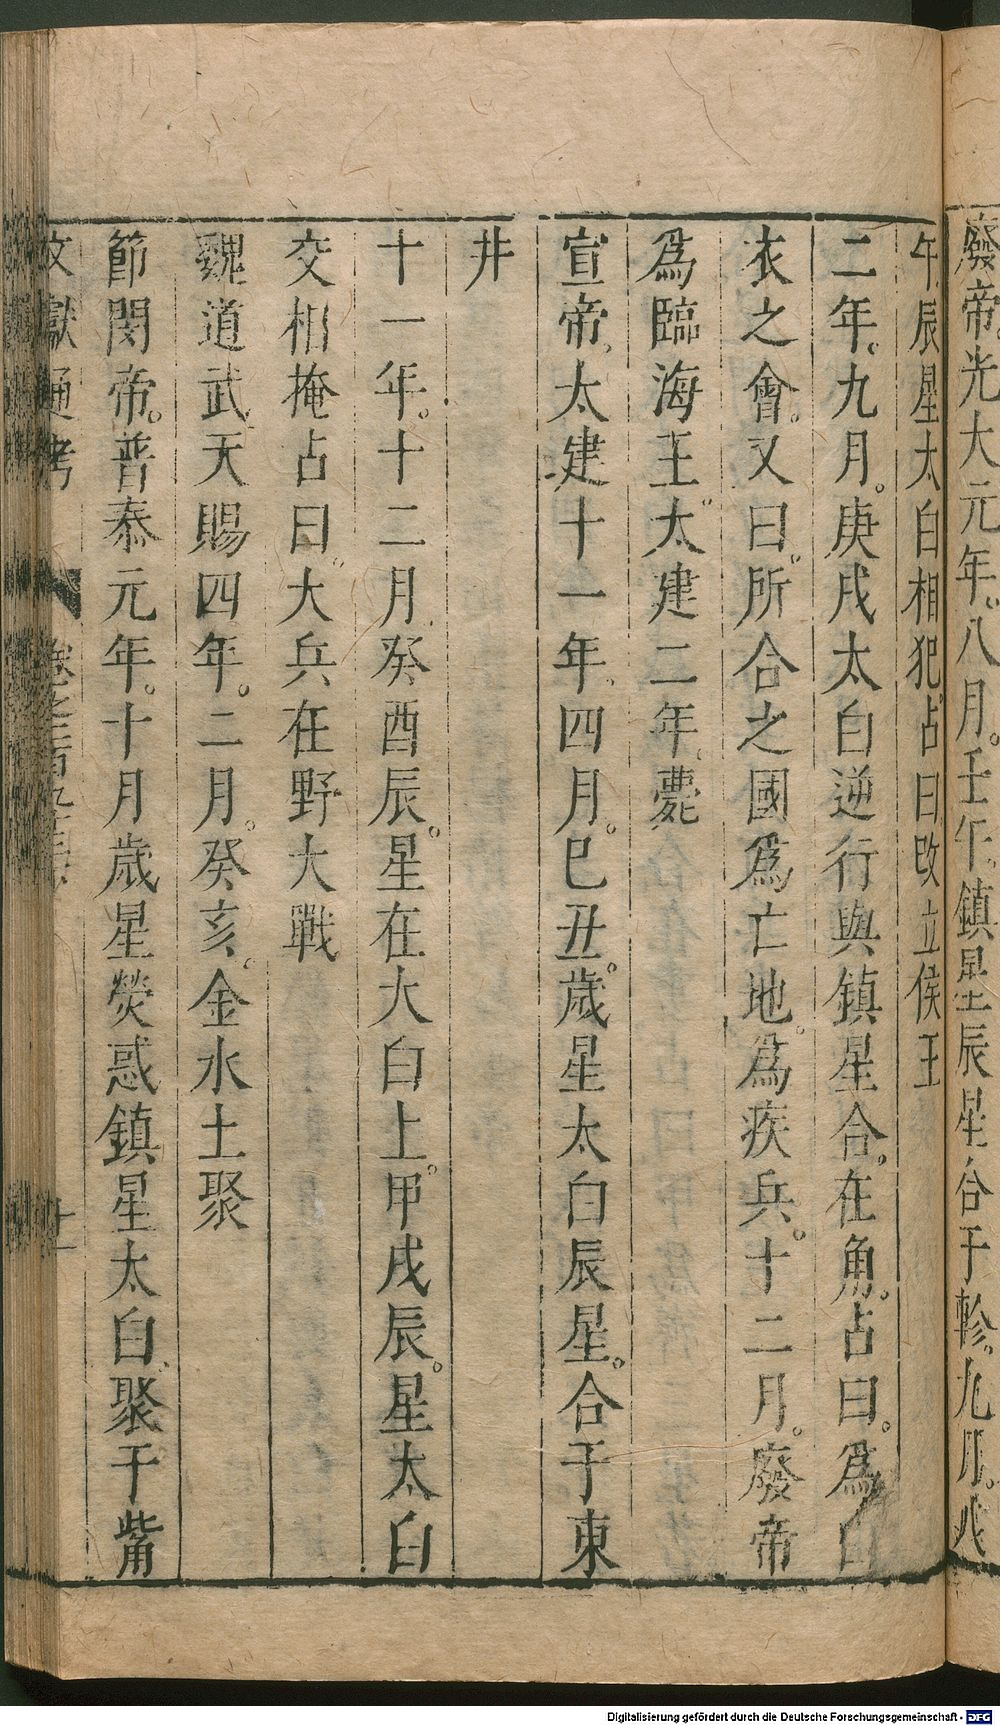 廢帝光大元年。八月。壬午。鎮星辰星合于軫。九月。戊
午辰星太白相犯占曰改立侯王
二年。九月。庚戌太白逆行與鎮星合。在角。占曰。爲白
衣之會。又曰。所合之國爲亡地。爲疾兵。十二月。廢帝
爲臨海王。太建二年。薨
宣帝太建十一年。四月。巳丑。歲星太白辰星。合于東
井
十一年。十二月癸酉辰。星在大白上。甲戌辰。星太白
交相掩占曰。大兵在野大戰
魏道武天賜四年。二月。癸亥。金水土聚
節閔帝。普泰元年。十月歲星熒惑鎮星太白聚于觜
文獻通考 卷之二百九十三 十一
Digitalisierung gefördert durch die Deutsche Forschungsgemeinschaft - DFG